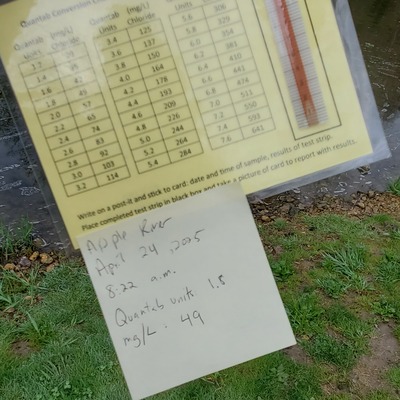 Quantab Conversion
Quantab (mg/L)
Units Chloride
1.6 42
1.8 49
2.0 57
2.2 65
2.4 74
2.6 83
2.8 92
3.0 103
3.2 114
Quantab (mg/L)
Units Chloride
3.4 125
3.6 137
3.8 150
4.0 164
4.2 178
4.4 193
4.6 209
4.8 226
5.0 244
5.2 264
5.4 284
5.6 306
5.8 329
6.0 354
6.2 381
6.4 410
6.6 441
6.8 474
7.0 511
7.2 550
7.4 593
7.6 641
Write on a post-it and stick to card: date and time of sample, results of test strip.
Place completed test strip in black box and take a picture of card to report with results.
Apple River
April 24, 2025
8:22 a.m.
Quantab units 1.8
mg/L. 49